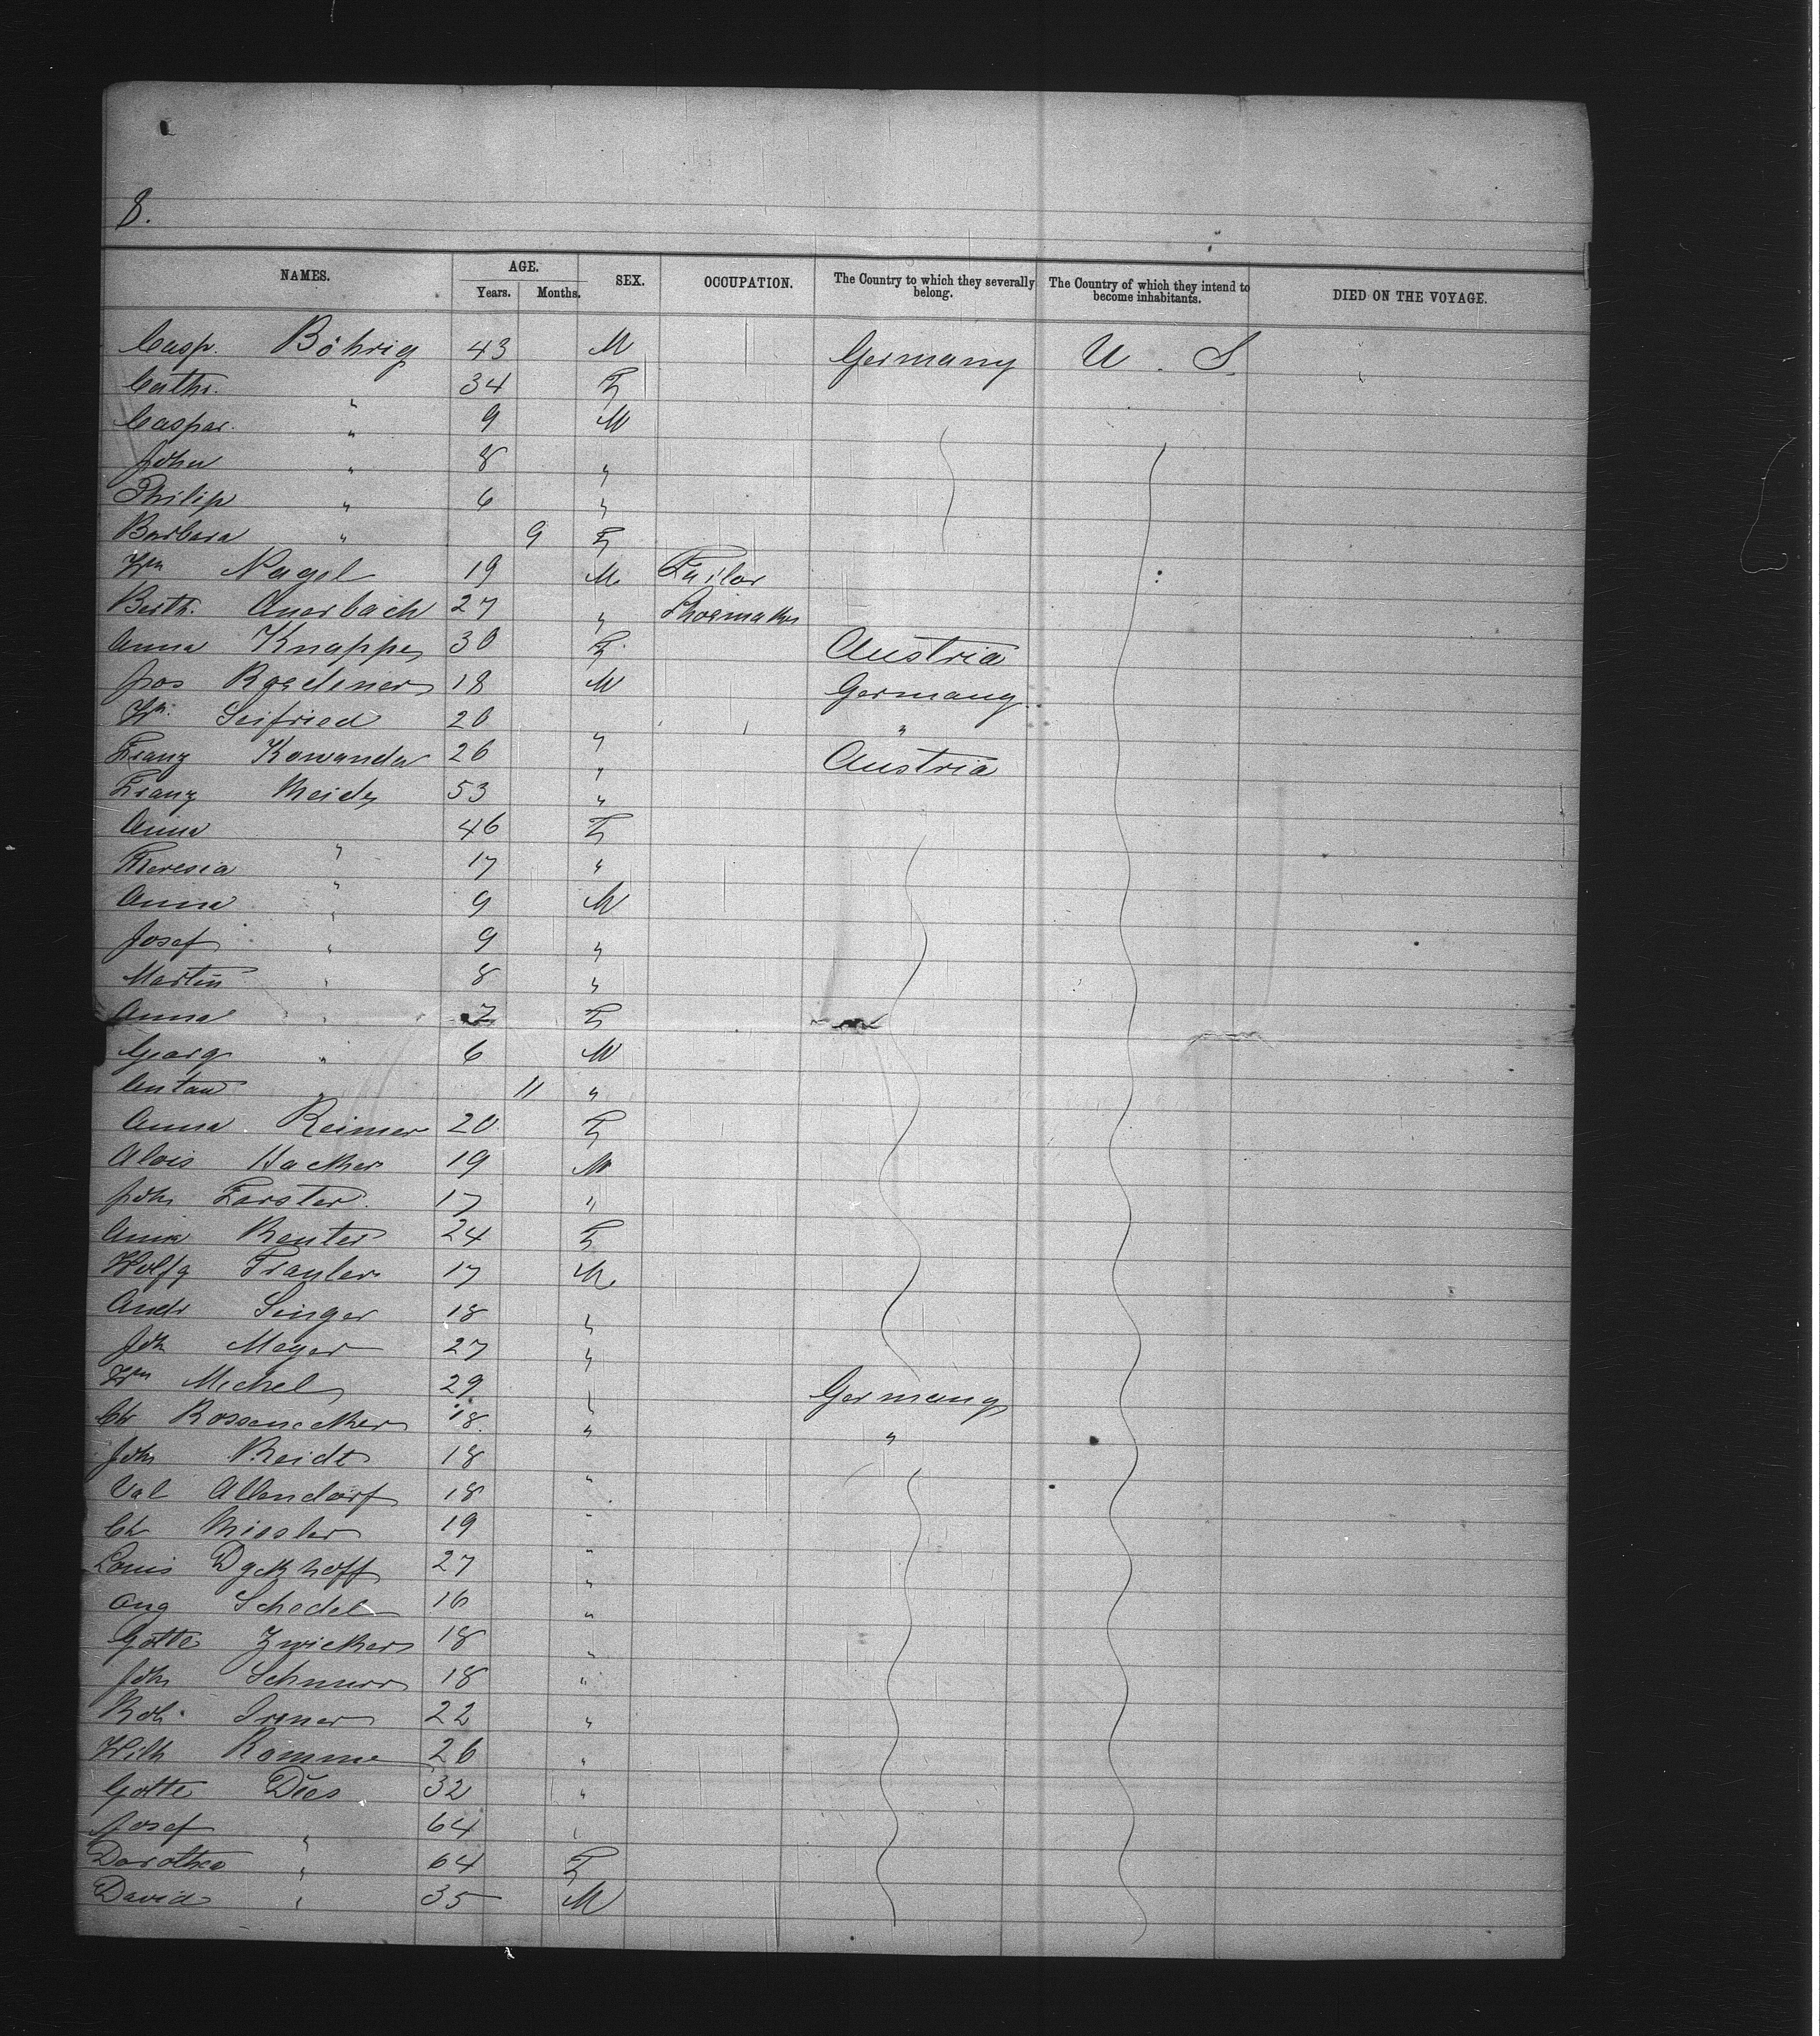 8.
NAMES. AGE. SEX. OCCUPATION. The Country to which they severally belong. The Country of which they intend to become inhabitants. DIED ON THE VOYAGE.
Years. Months.
Casp. Böhrig 43 M Germany U. S.
Cath. " 34 F
Caspar. " 9 M
John " 8 "
Philip " 6 "
Barbara " 9 F
Wm Nagel 19 M Tailor
Berth. Auerbach 27 " Shoemaker
Anna Knappe 30 F Austria
Jos 18 M Germany
Wm. Seifried 20 " "
Franz Kowanda 26 " Austria
Franz 53 "
Anna " 46 F
Theresia " 17 "
Anna " 9 M
Josef " 9 "
Martin " 8 "
Anna " 7 F
Georg " 6 M
" 11 "
Anna Reimer 20 F
Alois Hacker 19 M
Joh Forster 17 "
Anna Reuter 24 F
Wolfg 17 M
Andr Singer 18 "
Joh Meyer 27 "
Wm Michel 29 " Germany
Ch 18 " "
Joh Reidt 18 "
Val Allendorf 18 "
Ch Missler 19 "
Louis Dyckhoff 27 "
Aug Schedel 16 "
Gottl Zwicker 18 "
Joh Schnurr 18 "
Rob. 22 "
Wilh Romme 26 "
Gottl Dies 32 "
Josef " 64 "
Dorothea " 64 F
David " 35 M